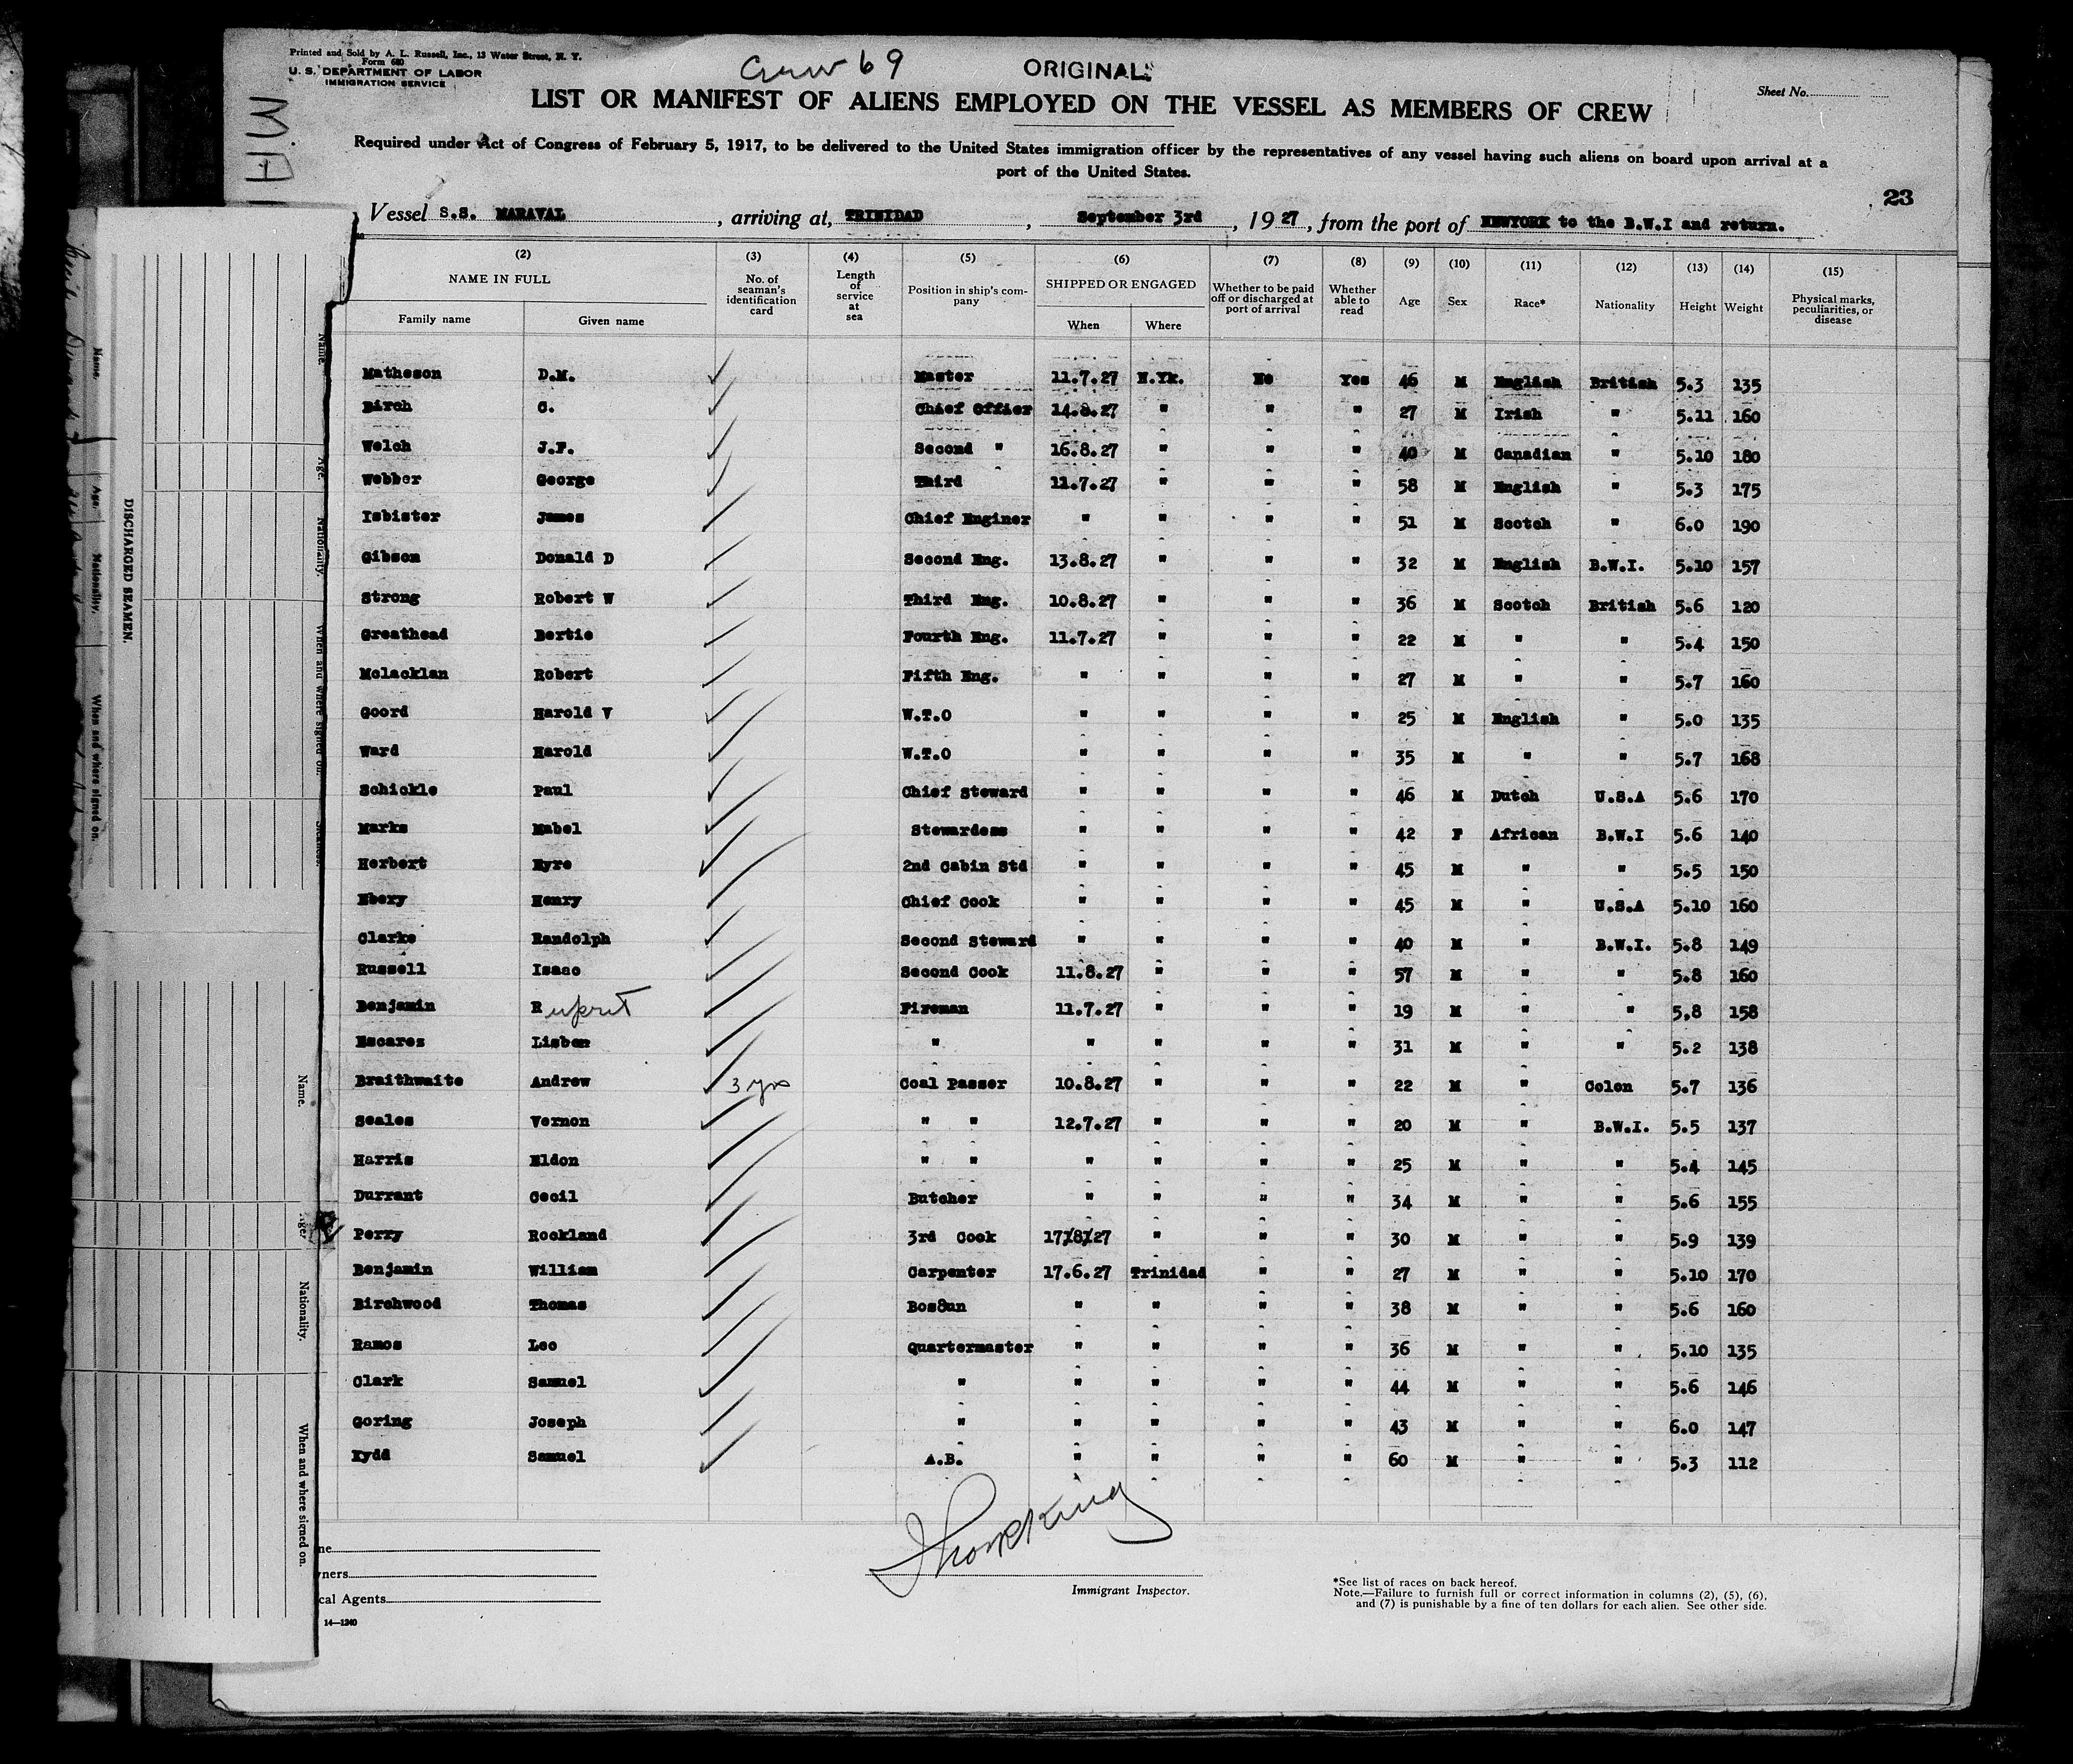 Printed and Sold by A. L. Russell, Inc., 13 Water Street, N. Y.
Form 680
U. S. DEPARTMENT OF LABOR
IMMIGRATION SERVICE
Crew 69
ORIGINAL
Sheet No.
LIST OR MANIFEST OF ALIENS EMPLOYED ON THE VESSEL AS MEMBERS OF CREW
Required under Act of Congress of February 5, 1917, to be delivered to the United States immigration officer by the representatives of any vessel having such aliens on board upon arrival at a
port of the United States.
23
Vessel S.S. MARAVAL, arriving at, TRINIDAD, September 3rd, 1927, from the port of NEWYORK to the B.W.I and return.
(2) (3) (4) (5) (6) (7) (8) (9) (10) (11) (12) (13) (14) (15)
NAME IN FULL No. of seaman's identification card Length of service at sea Position in ship's company SHIPPED OR ENGAGED Whether to be paid off or discharged at port of arrival Whether able to read Age Sex Race* Nationality Height Weight Physical marks, peculiarities, or disease
Family name Given name When Where
Matheson D.M. Master 11.7.27 N.Yk. No Yes 46 M English British 5.3 135
Birch C. Chief Offier 14.8.27 " " " 27 M Irish " 5.11 160
Welch J.F. Second " 16.8.27 " " " 40 M Canadian " 5.10 180
Webber George Third 11.7.27 " " " 58 M English " 5.3 175
Isbister James Chief Enginer " " " " 51 M Scotch " 6.0 190
Gibson Donald D Second Eng. 13.8.27 " " " 32 M English B.W.I. 5.10 157
Strong Robert W Third Eng. 10.8.27 " " " 36 M Scotch British 5.6 120
Greathead Bertie Fourth Eng. 11.7.27 " " " 22 M " " 5.4 150
Mclacklan Robert Fifth Eng. " " " " 27 M " " 5.7 160
Goord Harold V W.T.O " " " " 25 M English " 5.0 135
Ward Harold W.T.O " " " " 35 M " " 5.7 168
Schickle Paul Chief Steward " " " " 46 M Dutch U.S.A 5.6 170
Marks Mabel Stewardess " " " " 42 F African B.W.I 5.6 140
Herbert Eyre 2nd Cabin Std " " " " 45 M " " 5.5 150
Ebery Henry Chief Cook " " " " 45 M " U.S.A 5.10 160
Clarke Randolph Second Steward " " " " 40 M " B.W.I. 5.8 149
Russell Isaac Second Cook 11.8.27 " " " 57 M " " 5.8 160
Benjamin Rupert Fireman 11.7.27 " " " 19 M " " 5,8 158
Escares Lisben " " " " " 31 M " " 5.2 138
Braithwaite Andrew 3 yrs Coal Passer 10.8.27 " " " 22 M " Colon 5.7 136
Seales Vernon " " 12.7.27 " " " 20 M " B.W.I. 5.5 137
Harris Eldon " " " " " " 25 M " " 5.4 145
Durrant Cecil Butcher " " " " 34 M " " 5.6 155
Perry Rockland 3rd Cook 17/8/27 " " " 30 M " " 5.9 139
Benjamin William Carpenter 17.6.27 Trinidad " " 27 M " " 5.10 170
Birchwood Thomas Bos8un " " " " 38 M " " 5.6 160
Ramos Leo Quartermaster " " " " 36 M " " 5.10 135
Clark Samuel " " " " " 44 M " " 5.6 146
Goring Joseph " " " " " 43 M " " 6.0 147
Kydd Samuel A.B. " " " " 60 M " " 5.3 112
Immigrant Inspector.
ne
ners
cal Agents
14—1240
*See list of races on back hereof.
Note.—Failure to furnish full or correct information in columns (2), (5), (6),
and (7) is punishable by a fine of ten dollars for each alien. See other side.
DISCHARGED SEAMEN.
Name. Age. Nationality. When and where signed on.
Name. Age. Nationality. When and where signed on.
Name. Age. Nationality. When and where signed on.